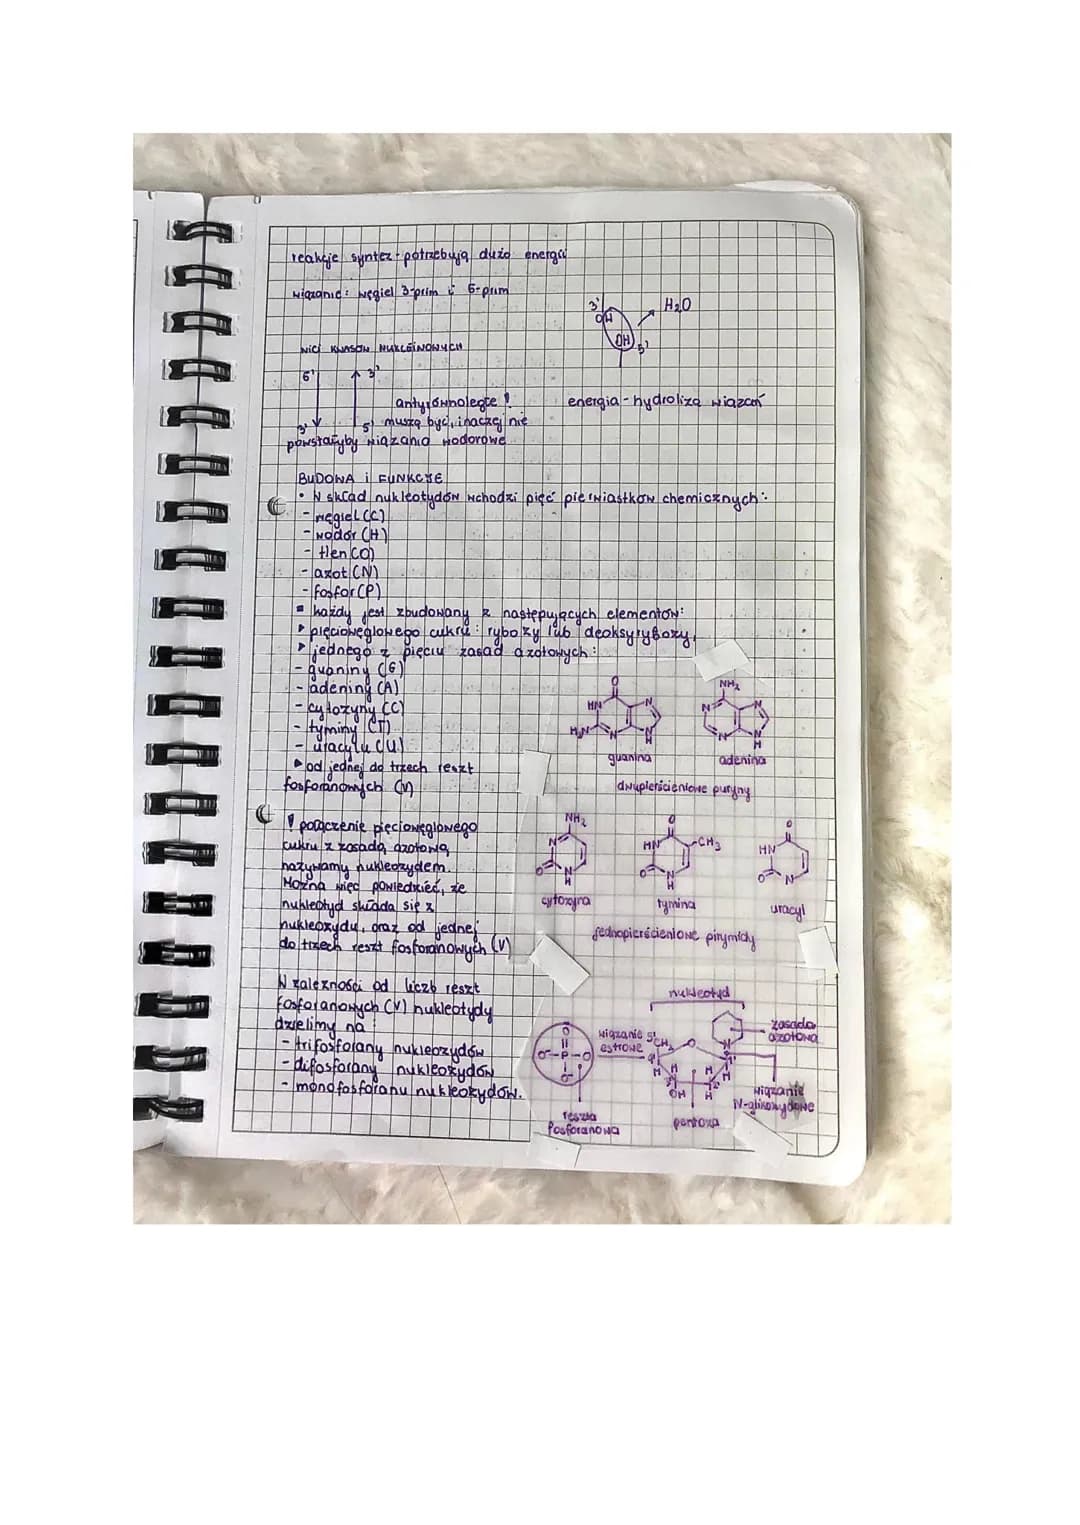 reakcje syntez - potrzebują dużo energii
wiązanie: węgiel 3-prim i 5-prim
3'
OH
H₂O
OH
5'
NICI KWASÓW NUKLEINOWYCH
5' 3'
antyrównoległe!
energia - hydroliza wiązań
3' 5' muszą być, inaczej nie
powstałyby wiązania wodorowe
BUDOWA i FUNKCJE
• W skład nukleotydów wchodzi pięć pierwiastków chemicznych:
- węgiel (C)
- wodór (H)
- tlen (O)
- azot (N)
- fosfor (P)
▪ każdy jest zbudowany z następujących elementów:
▸ pięciowęglowego cukru: rybozy lub deoksyrybozy,
▸ jednego z pięciu zasad azotowych:
- guaniny (G)
- adeniny (A)
- cytozyny (C)
- tyminy (T)
- uracylu (U)
▸ od jednej do trzech reszt
fosforanowych (V)
O
HN
N
H₂N
N
N
H
guanina
NH₂
N
N
N
N
H
adenina
dwupierścieniowe puryny
! połączenie pięciowęglowego
cukru z zasadą azotową
nazywamy nukleozydem.
Można więc powiedzieć, że
nukleotyd składa się z
nukleozydu, oraz od jednej
do trzech reszt fosforanowych (V)
NH₂
N
O
N
H
cytozyna
O
HN
CH₃
O
N
H
tymina
O
HN
O
N
uracyl
jednopierścieniowe pirymidy
W zależności od liczb reszt
fosforanowych (V) nukleotydy
dzielimy na:
- trifosforany nukleozydów
- difosforany nukleozydów
- monofosforanu nukleozydów.
nukleotyd
zasada
azotowa
wiązanie
estrowe
5'
CH₂
O
N
O
O-P-O
O
H
H
H
H
1'
3'
2'
OH
H
wiązanie
N-glikozydowe
reszta
fosforanowa
pentoza